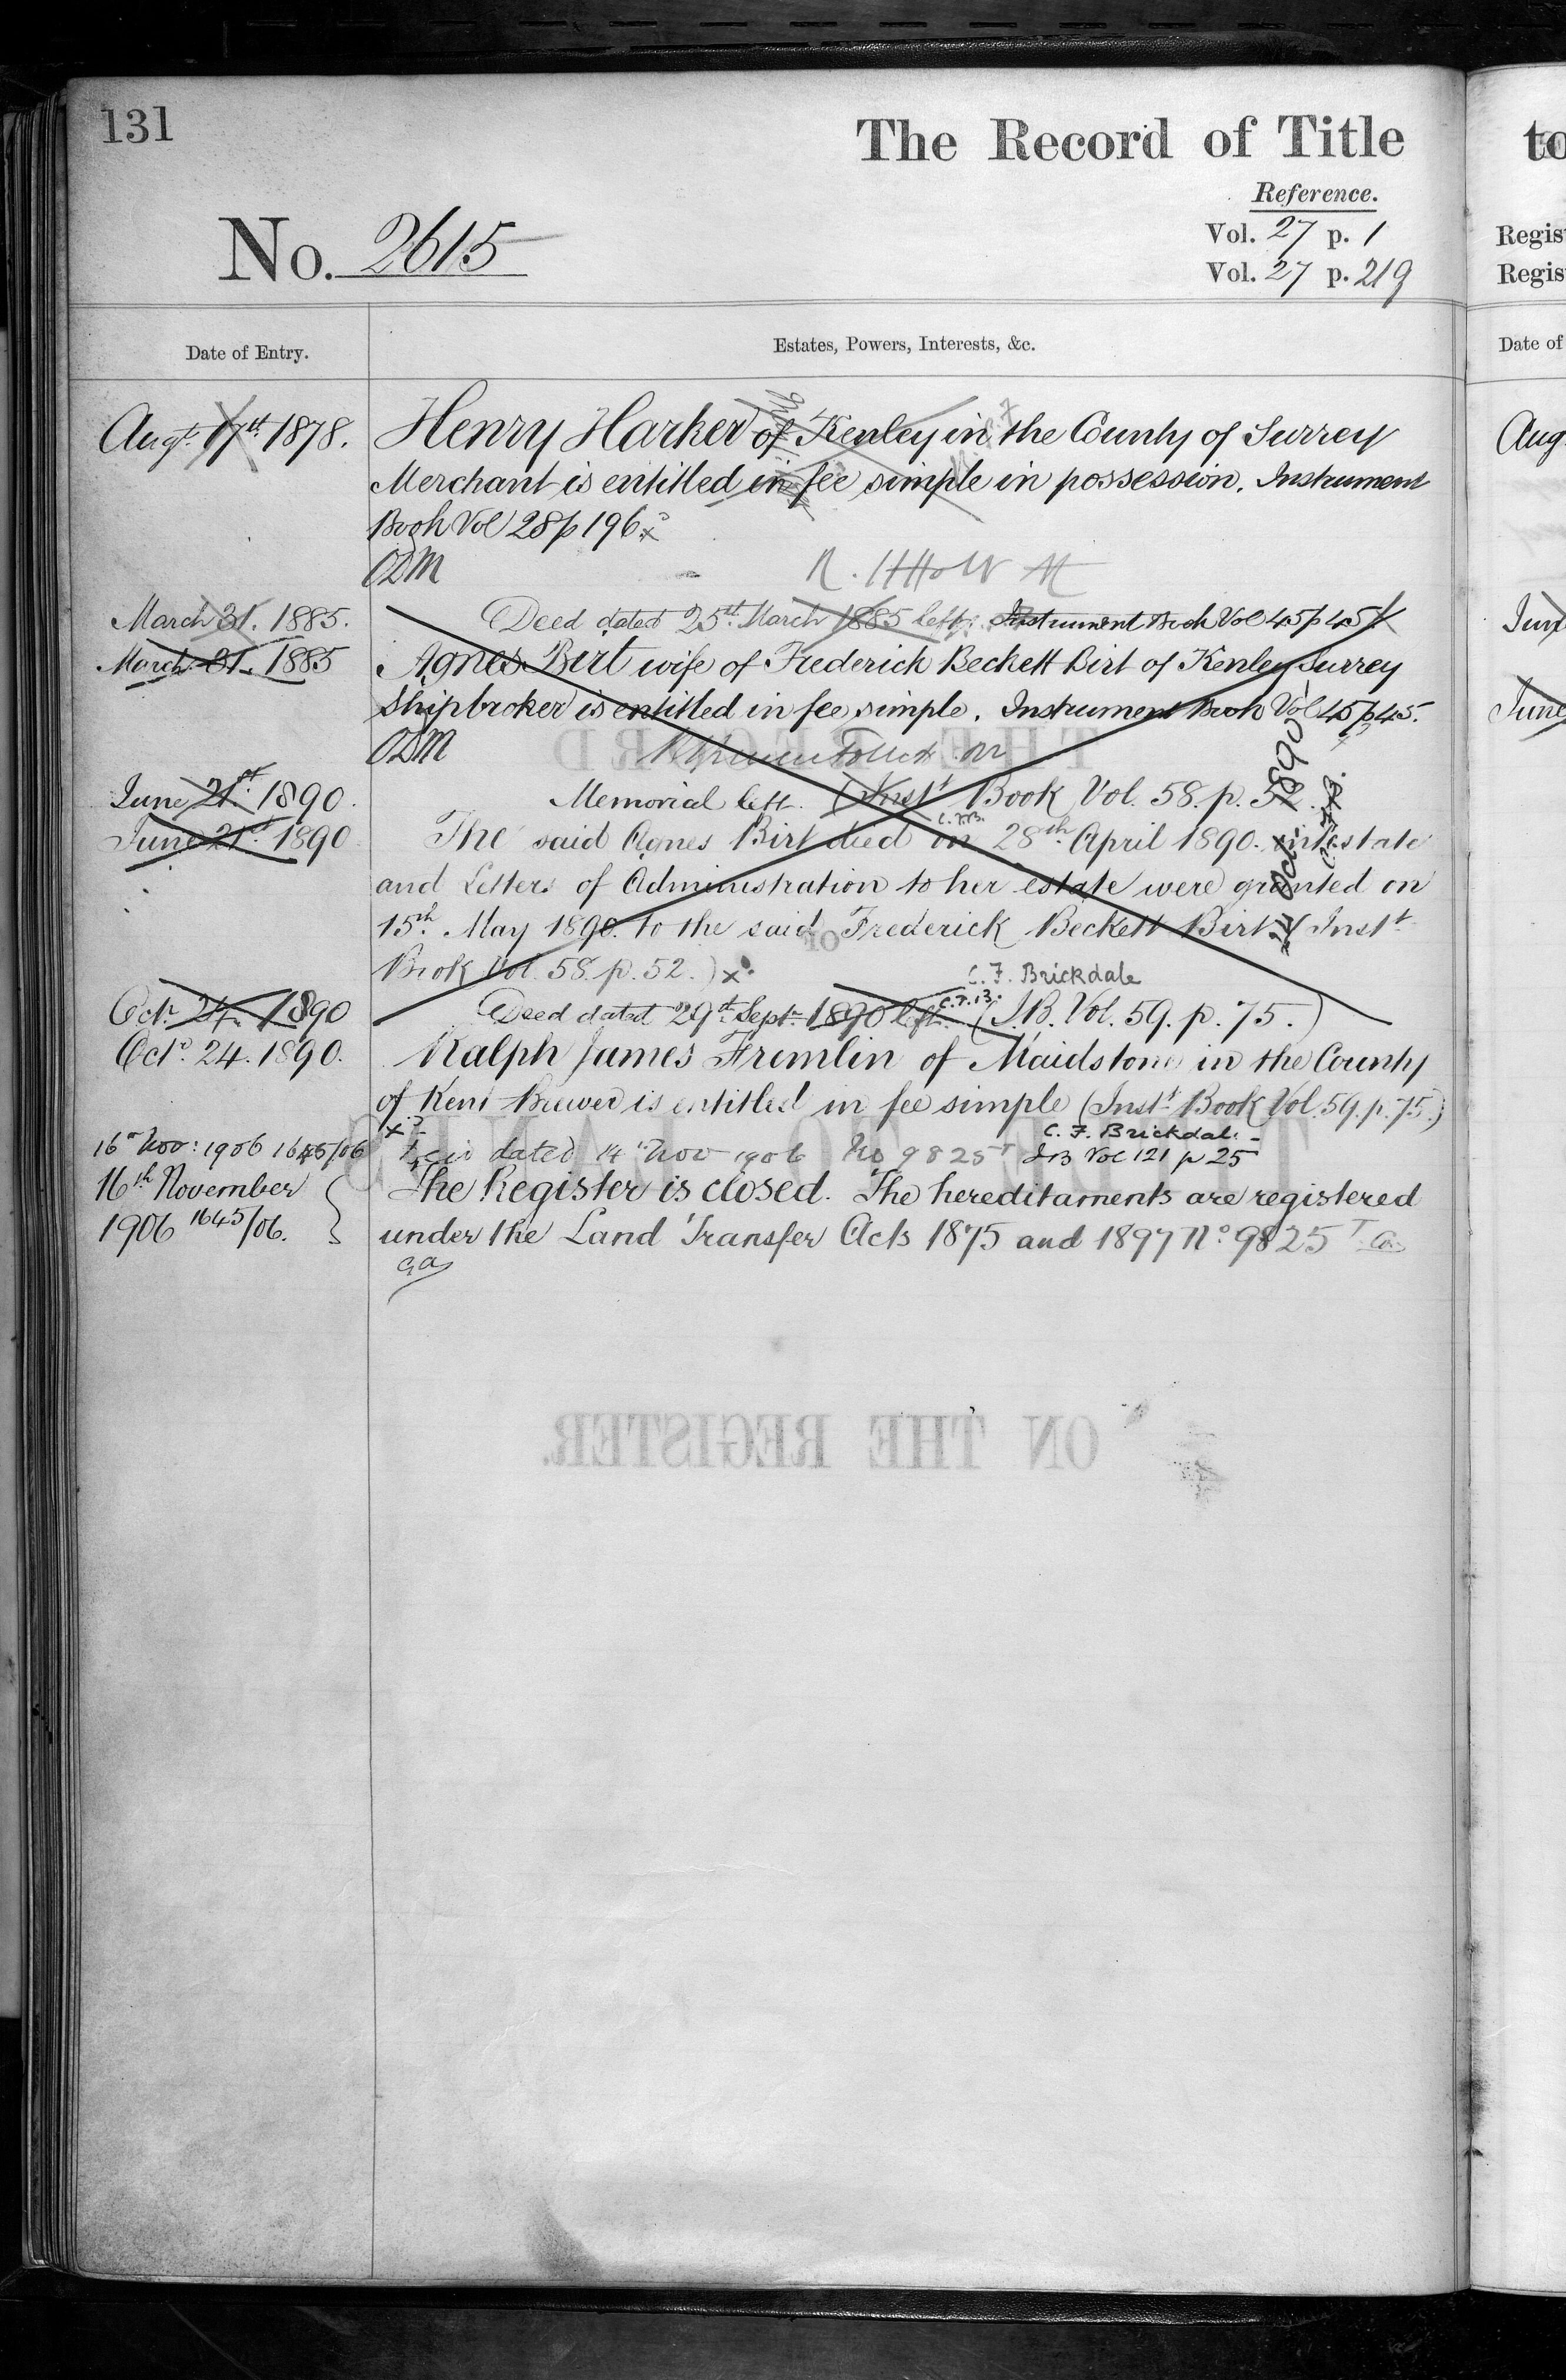 131
The Record of Title
Reference.
No. 2615
Vol. 27 p. 1
Vol. 27 p. 219
Date of Entry.
Estates, Powers, Interests, &c.
Augt. 17th 1878.
Henry Harker of Kenley in the County of Surrey
Merchant is entitled in fee simple in possession. Instrument
Book Vol 28 p 196 x
ODM
March 31. 1885.
Deed dated 25th March 1885 left. Instrument Book Vol 45 p 45
March 31. 1885
Agnes Birt wife of Frederick Beckett Birt of Kenley Surrey
Shipbroker is entitled in fee simple. Instrument Book Vol 45 p 45.
ODM
June 21st 1890.
Memorial left. (Inst Book Vol. 58. p. 52.
C.F.B.
June 21st 1890
The said Agnes Birt died on 28th April 1890. intestate
and Letters of Administration to her estate were granted on
15th May 1890. to the said Frederick Beckett Birt (Inst
Book Vol. 58. p. 52.) x
24 Oct 1890
C.F.B.
C. F. Brickdale
Oct. 24. 1890
Deed dated 29th Sept. 1890 left. (I.B. Vol. 59. p. 75.)
C.F.B.
Oct. 24. 1890.
Ralph James Fremlin of Maidstone in the County
of Kent Brewer is entitled in fee simple (Inst. Book Vol. 59. p. 75.)
x
C. F. Brickdale
16 Nov: 1906 1645/06
dated 14 Nov 1906 No 9825 I B Vol 121 p 25
16th November
1906 1645/06.
The Register is closed. The hereditaments are registered
under the Land Transfer Acts 1875 and 1897 No 9825
THE RECORD
OF
TITLE TO LANDS
ON THE REGISTER.
to
Regis
Regis
Date of
Aug
June
June